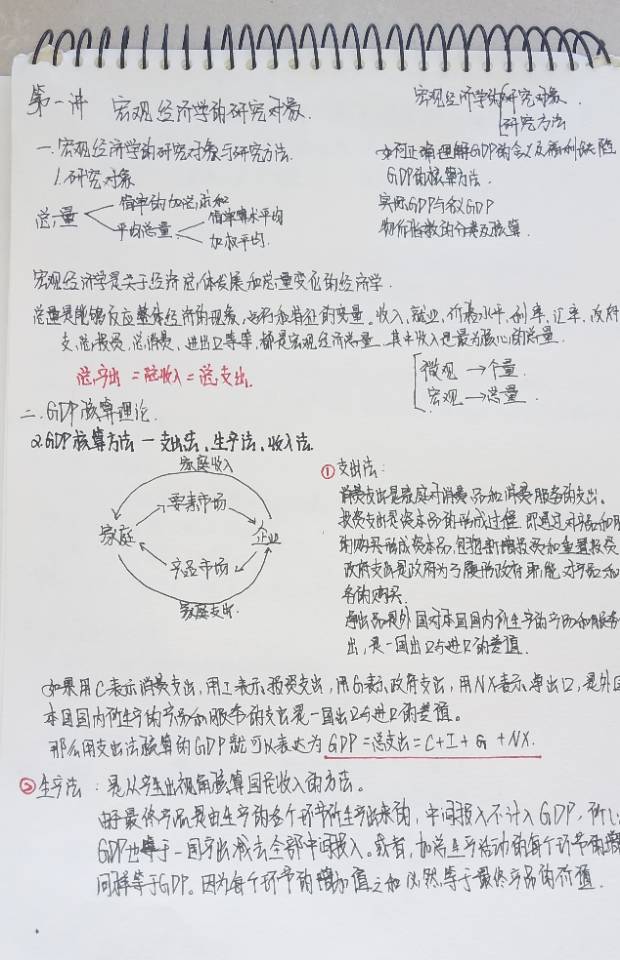 第一讲 宏观经济学的研究对象.
宏观经济学的研究对象.
研究方法
一.宏观经济学的研究对象与研究方法.
1.研究对象
总量
简单的加总求和
平均总量
简单算术平均
加权平均.
如何正确理解GDP的含义及缺陷
GDP的核算方法.
实际GDP与名义GDP
物价指数的分类及核算.
宏观经济学是关于经济总体发展和总量变化的经济学.
总量是能够反应整体经济的现象、运行和特征的变量。收入、就业、价格水平、利率、汇率、政府
支、总投资、总消费、进出口等等,都是宏观经济总量.其中收入也是最为核心的总量.
总产出=总收入=总支出.
微观→个量.
宏观→总量.
二.GDP核算理论.
2.GDP核算方法—支出法、生产法、收入法.
家庭收入
要素市场
家庭
企业
产品市场
家庭支出.
①支出法:
消费支出是家庭对消费品和消费服务的支出。
投资支出是资本品的形成过程 即通过对产品和服
的购买形成资本品,包括新增投资和重置投资
政府支出是政府为了履行政府职能,对产品和
务的购买.
净出口是外国对本国国内所生产的产品和服务
出,是一国出口与进口的差值.
如果用C表示消费支出,用I表示投资支出,用G表示政府支出,用NX表示净出口,是外国
本国国内所生产的产品和服务的支出是一国出口与进口的差值。
那么用支出法核算的GDP就可以表达为GDP=总支出=C+I+G+NX.
②生产法:是从产出视角核算国民收入的方法。
由于最终产品是由生产的各个环节所生产出来的,中间投入不计入GDP,所以
GDP也等于一国产出减去全部中间投入。或者,加总生产活动的每个环节的增
同样等于GDP。因为每个环节的增加值之和必然等于最终产品的价值.